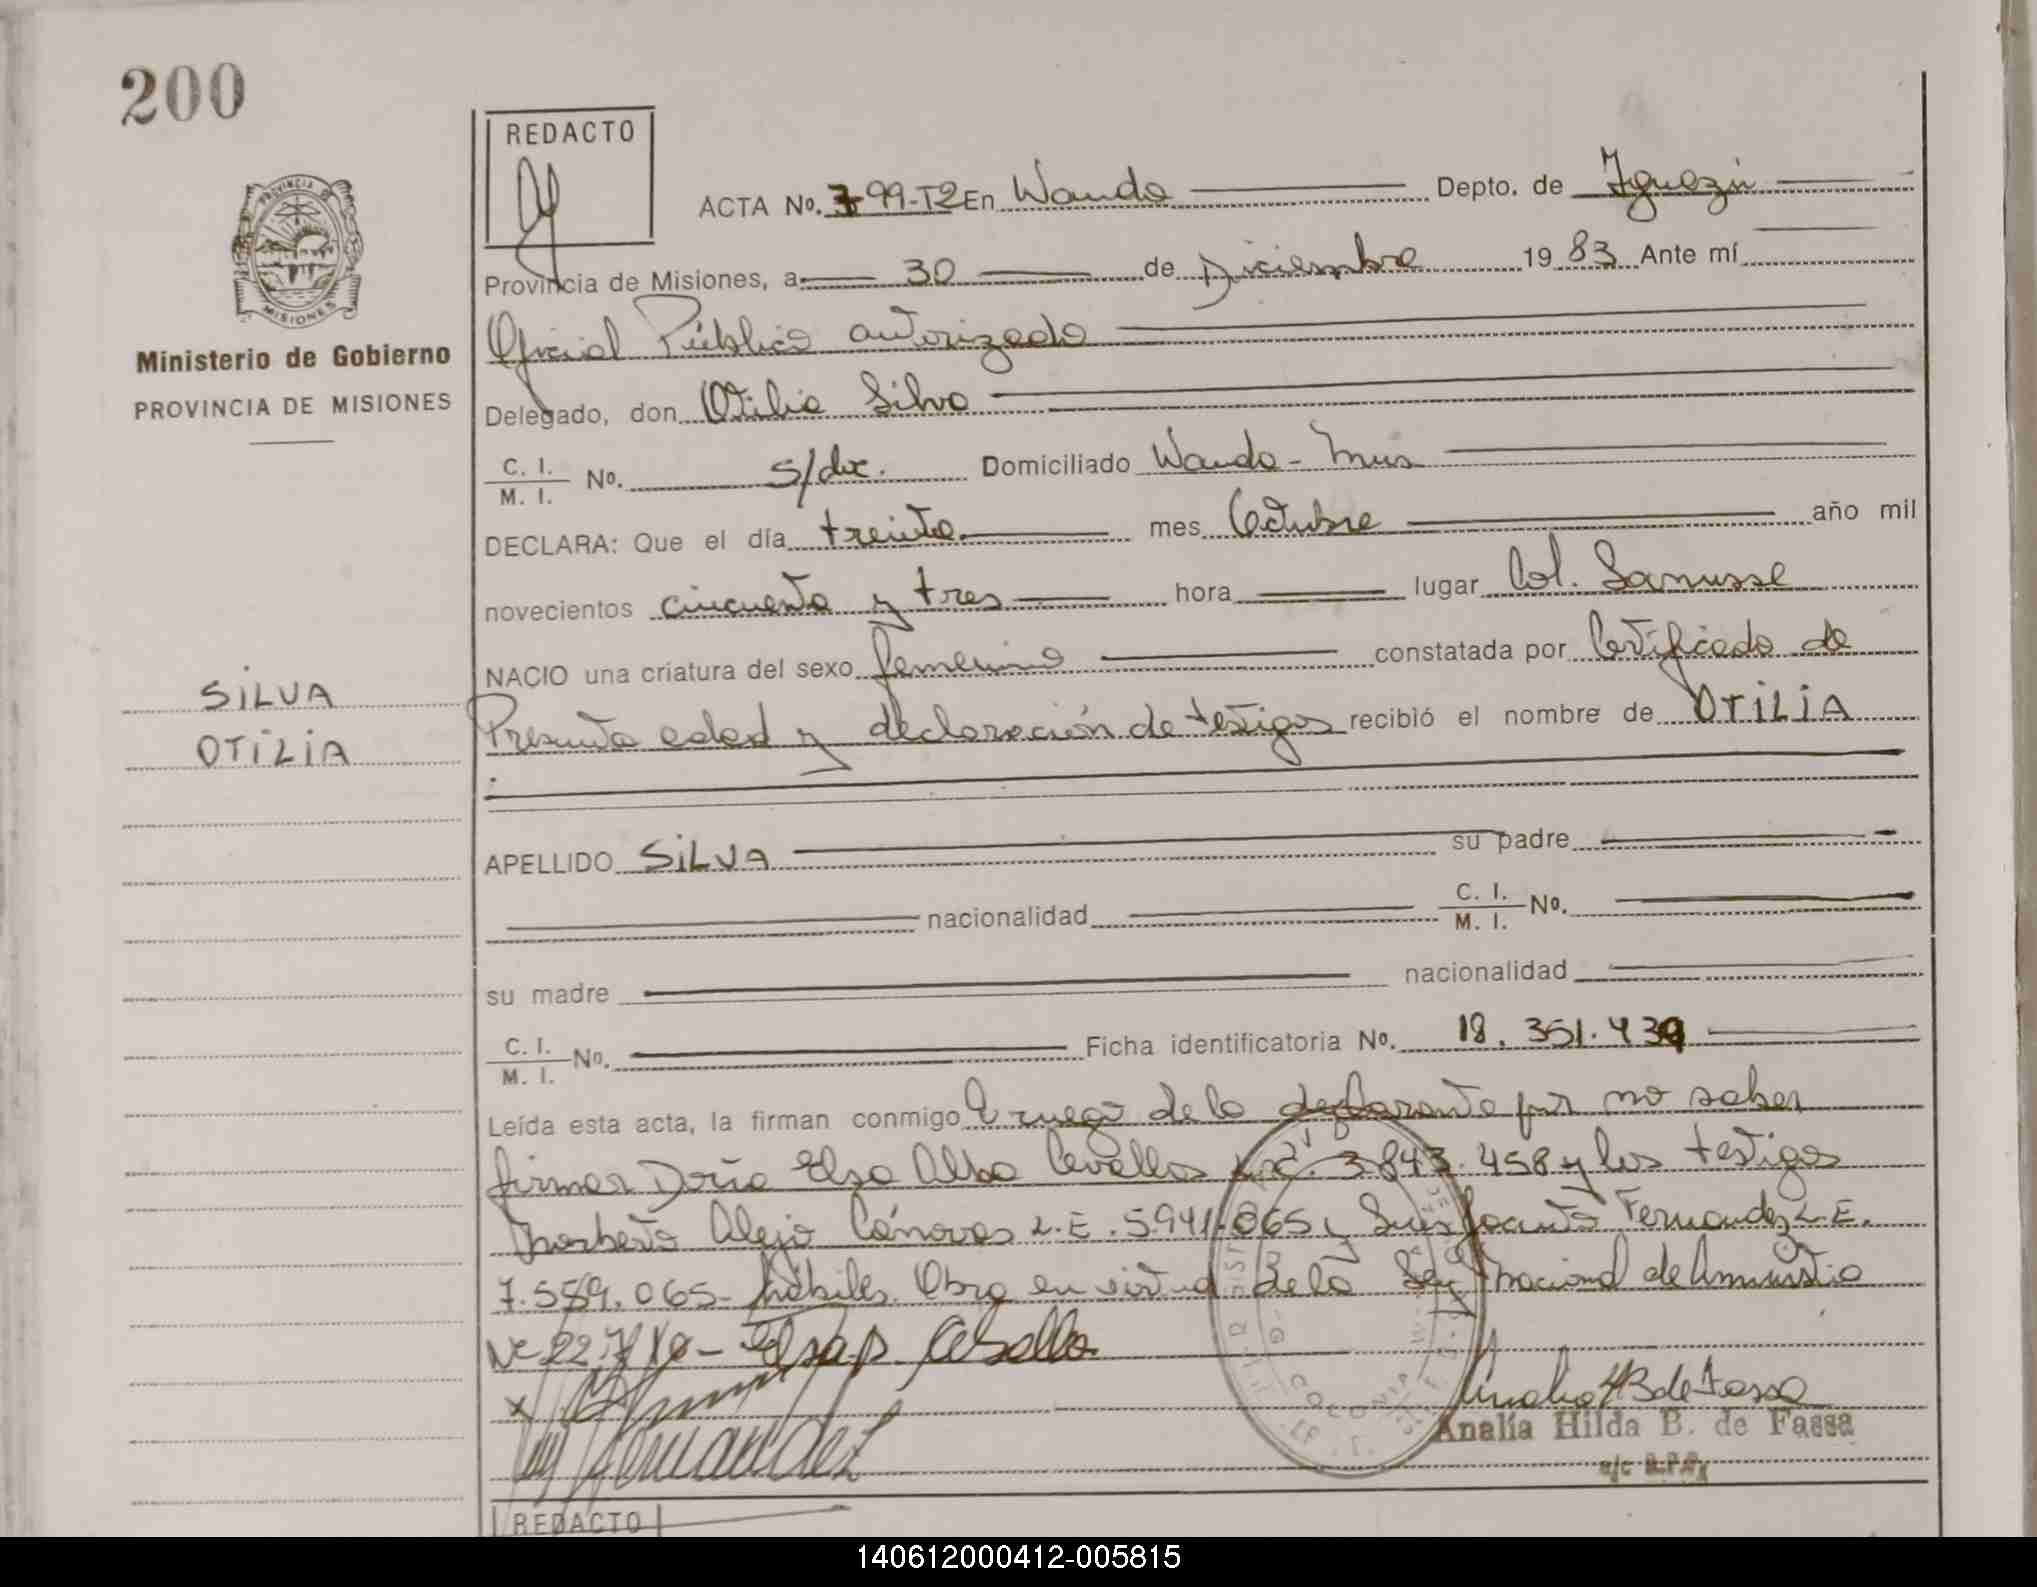 200
REDACTO
ACTA No. 799-T2 En Wanda Depto. de Iguazú
Provincia de Misiones, a 30 de Diciembre 1983 Ante mí
Oficial Público autorizado
Delegado, don Otilia Silva
C. I.
M. I. No. s/doc. Domiciliado Wanda - Mnes
DECLARA: Que el día treinta mes Octubre año mil
novecientos cincuenta y tres hora lugar Col. Lanusse
NACIO una criatura del sexo femenino constatada por Certificado de
Presunta edad y declaración de testigos recibió el nombre de OTILIA
APELLIDO SILVA su padre
nacionalidad C. I.
M. I. No.
su madre nacionalidad
C. I.
M. I. No. Ficha identificatoria No. 18.351.439
Leída esta acta, la firman conmigo A ruego de la declarante por no saber
firmar Doña Elsa Alba Cevallos L.C. 3.843.458 y los testigos
Norberto Alejo Cánovas L.E. 5.941.865 y Luis Jacinto Fernandez L.E.
7.589.065- hábiles. Obra en virtud de la Ley Nacional de Amnistia
Nº 22
Fernandez
Analía Hilda B. de Fassa
a/c
PROVINCIA DE
MISIONES
Ministerio de Gobierno
PROVINCIA DE MISIONES
SILVA
OTILIA
COLONIA
REDACTO
140612000412-005815